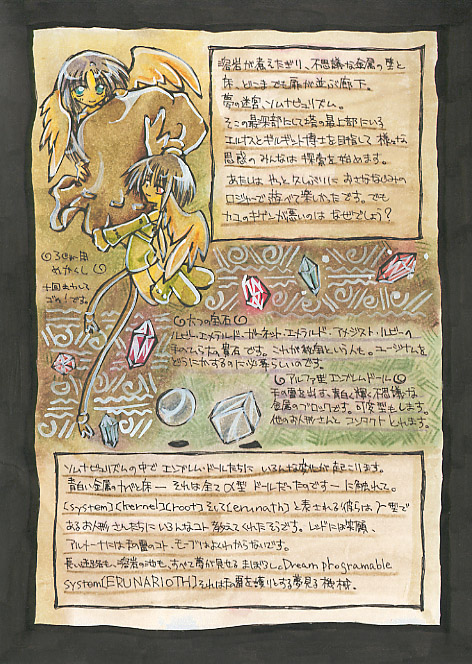 溶岩が煮えたぎり、不思議な金属の壁と
床、どこまでも扉が並ぶ廊下。
夢の迷宮、ソムナピュリズム。
そこの最深部にして塔の最上部にいる
エルナスとギルギット博士を目指して 様々な
思惑の みんなは 探索を始めます。
あたしは やっと 久しぶりに おさななじみの
ロジャーで 遊べて楽かたです。でも
カコのキゲンが悪いのは なぜでしょう?
めかくし
です。
六つの宝石
ルビー・エメラルド・ガーネット・エメラルド・アメジスト・ルビーへ
手のひら大の貴石です。これが秘宝というんも。ユージナムを
どうにかするのに必要らしいです。
アルファ型 エンブレムドール
銀の雷を出す、青白く輝く不思議な
金属のブロックです。可変型もします。
他のお人形さんと コンタクト とれます。
ソムナピュリズムの中で エンブレム・ドールたちに いろんな変化が起こります。
青白い金属のかべと床 ― それは全てα型 ドールだったのです ― に触れて。
[system][kernel][root]そして[eruna]と表される彼らは γ型で
あるお人形さんたちに いろんなコト 教えてくれたそうです。レッドには笑顔、
アルトナーには
長い迷路も、溶岩の池も、すべて夢が見せる まぼろし。Dream programable
system[ERUNARIOTH]それは 夢見る 機械。